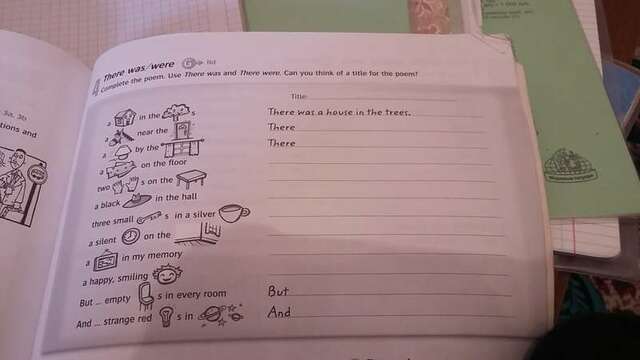 4 There was/were G 11d
Complete the poem. Use There was and There were. Can you think of a title for the poem?
Title:
a in the s There was a house in the trees.
a near the There
a by the There
a on the floor
two s on the
a black in the hall
three small s in a silver
a silent on the
a in my memory
a happy, smiling
But ... empty s in every room But
And ... strange red s in And
3a, 3b
tions and